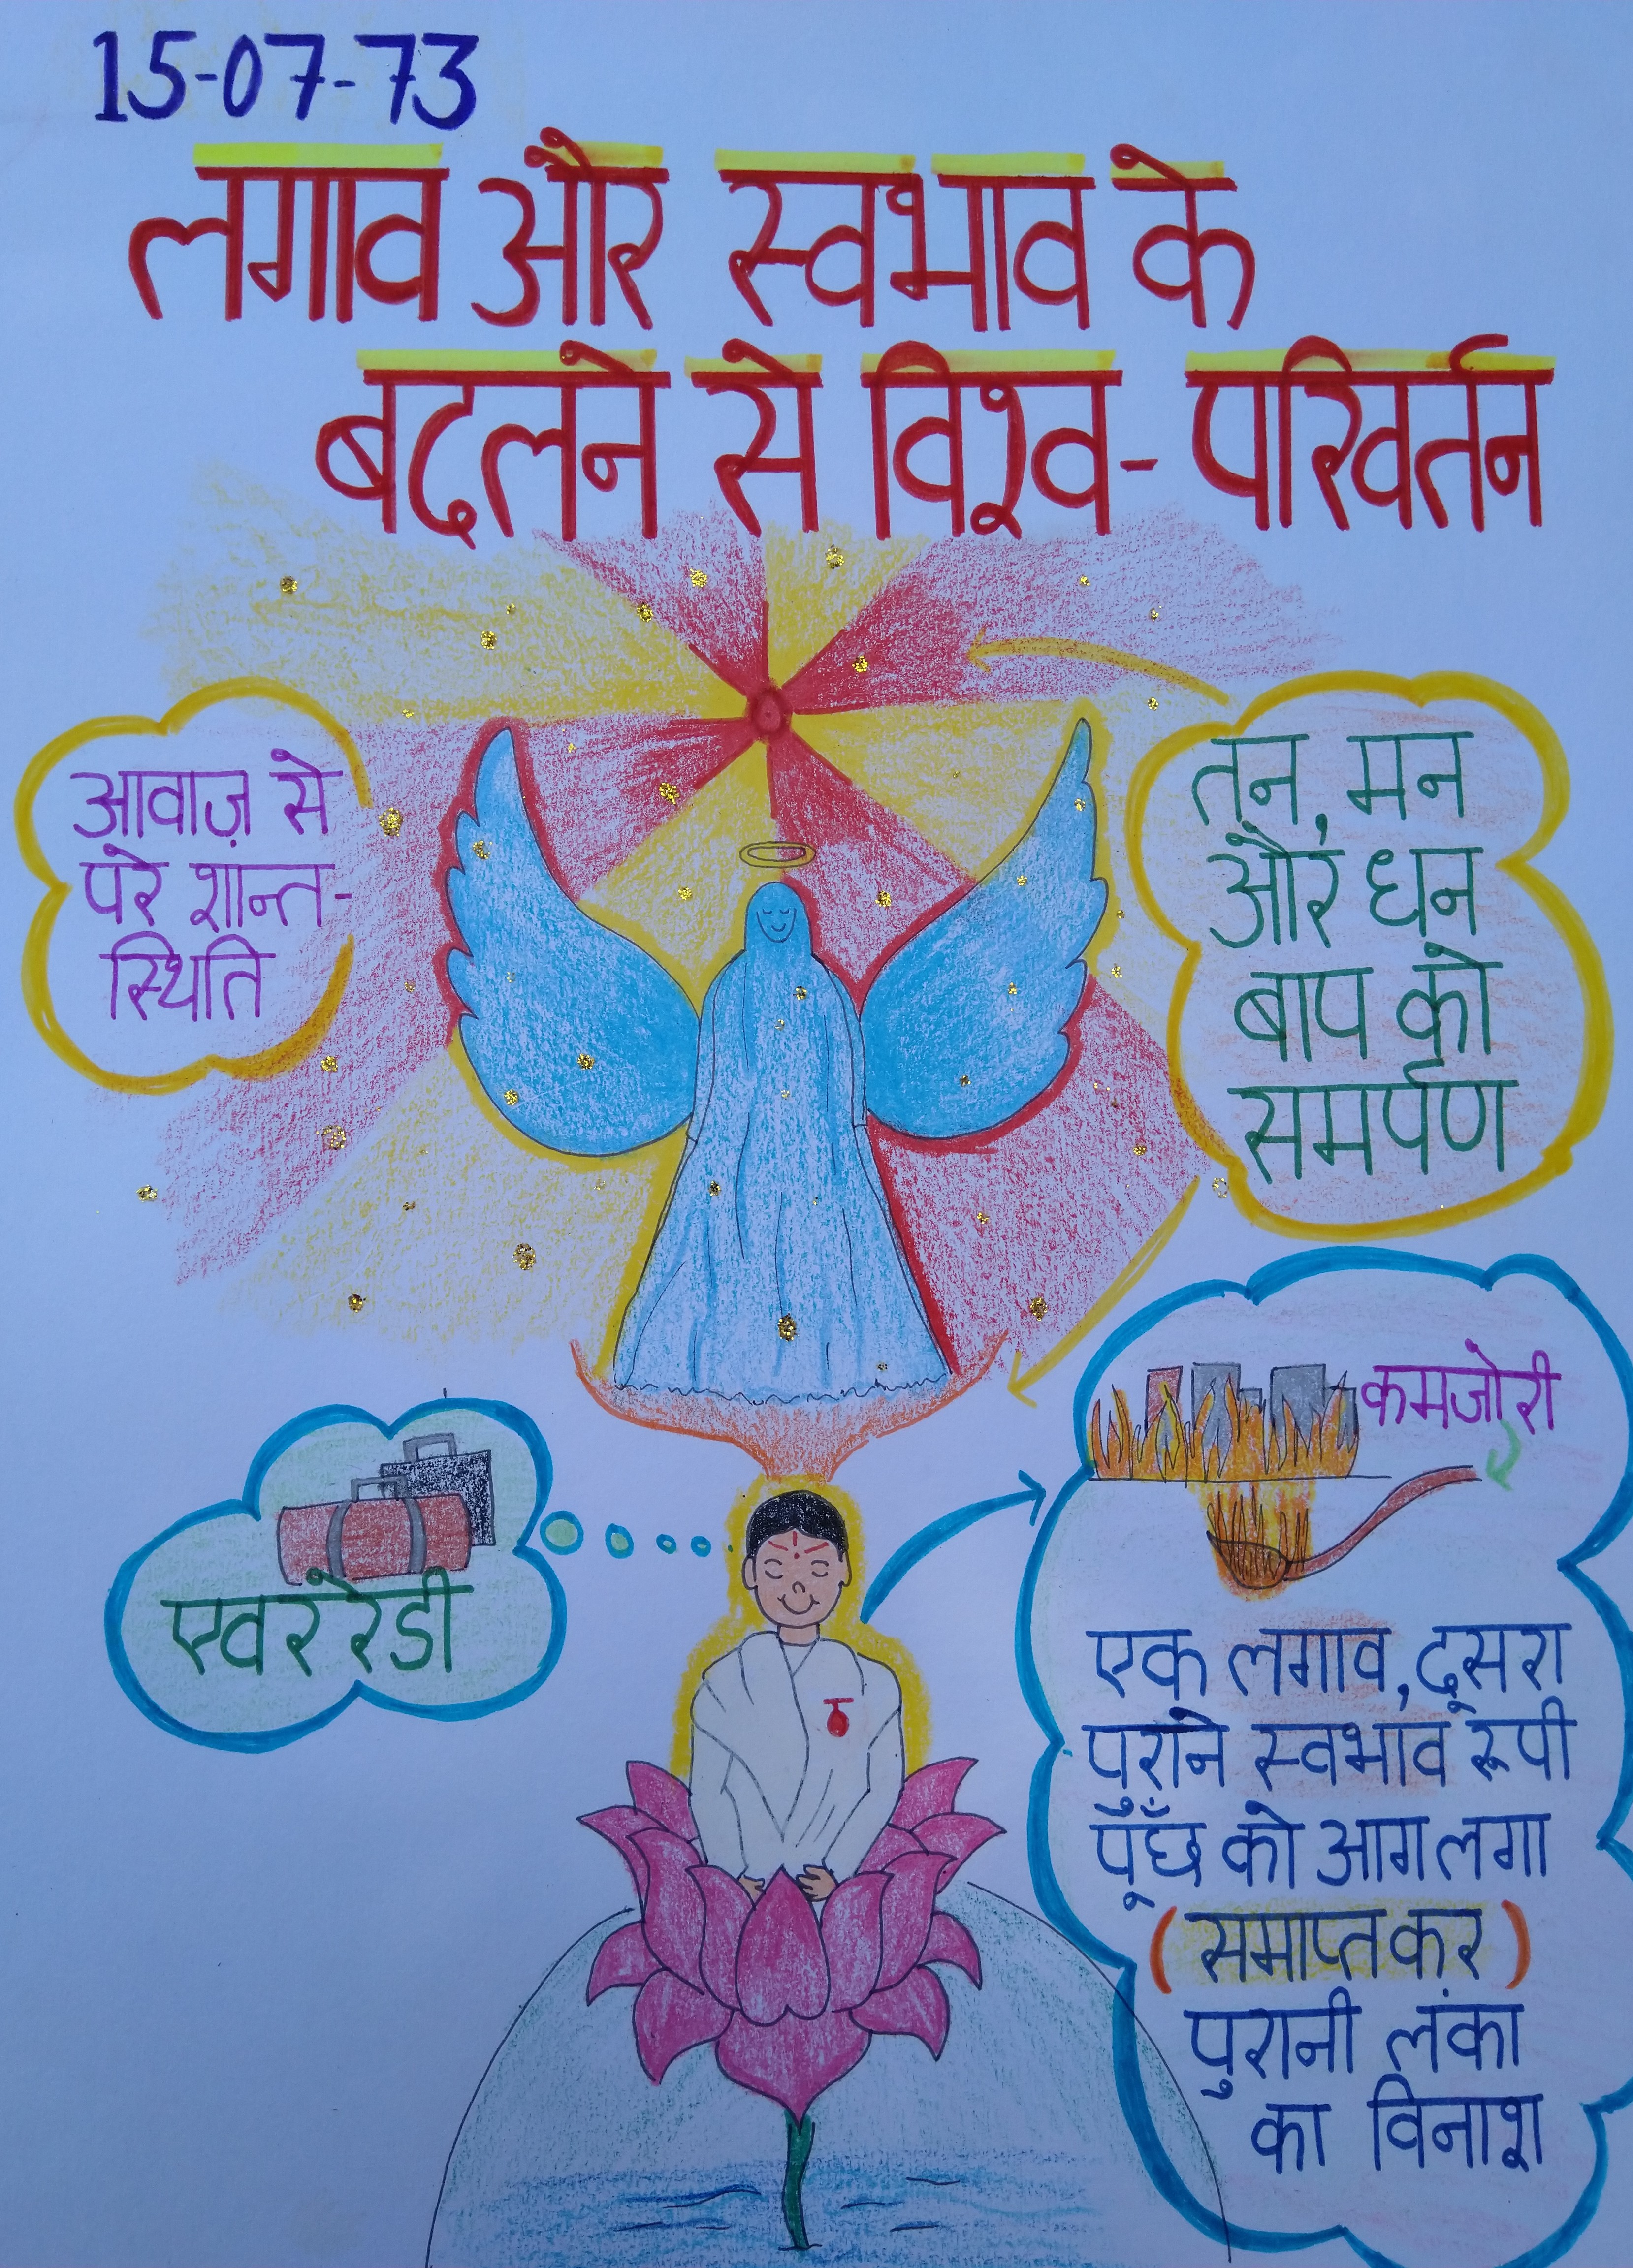 15-07-73
लगाव और स्वभाव के
बदलने से विश्व-परिवर्तन
आवाज़ से
परे शान्त-
स्थिति
तन, मन
और धन
बाप को
समर्पण
कमजोरी
एवररेडी
एक लगाव, दूसरा
पुराने स्वभाव रूपी
पूँछ को आग लगा
(समाप्त कर)
पुरानी लंका
का विनाश